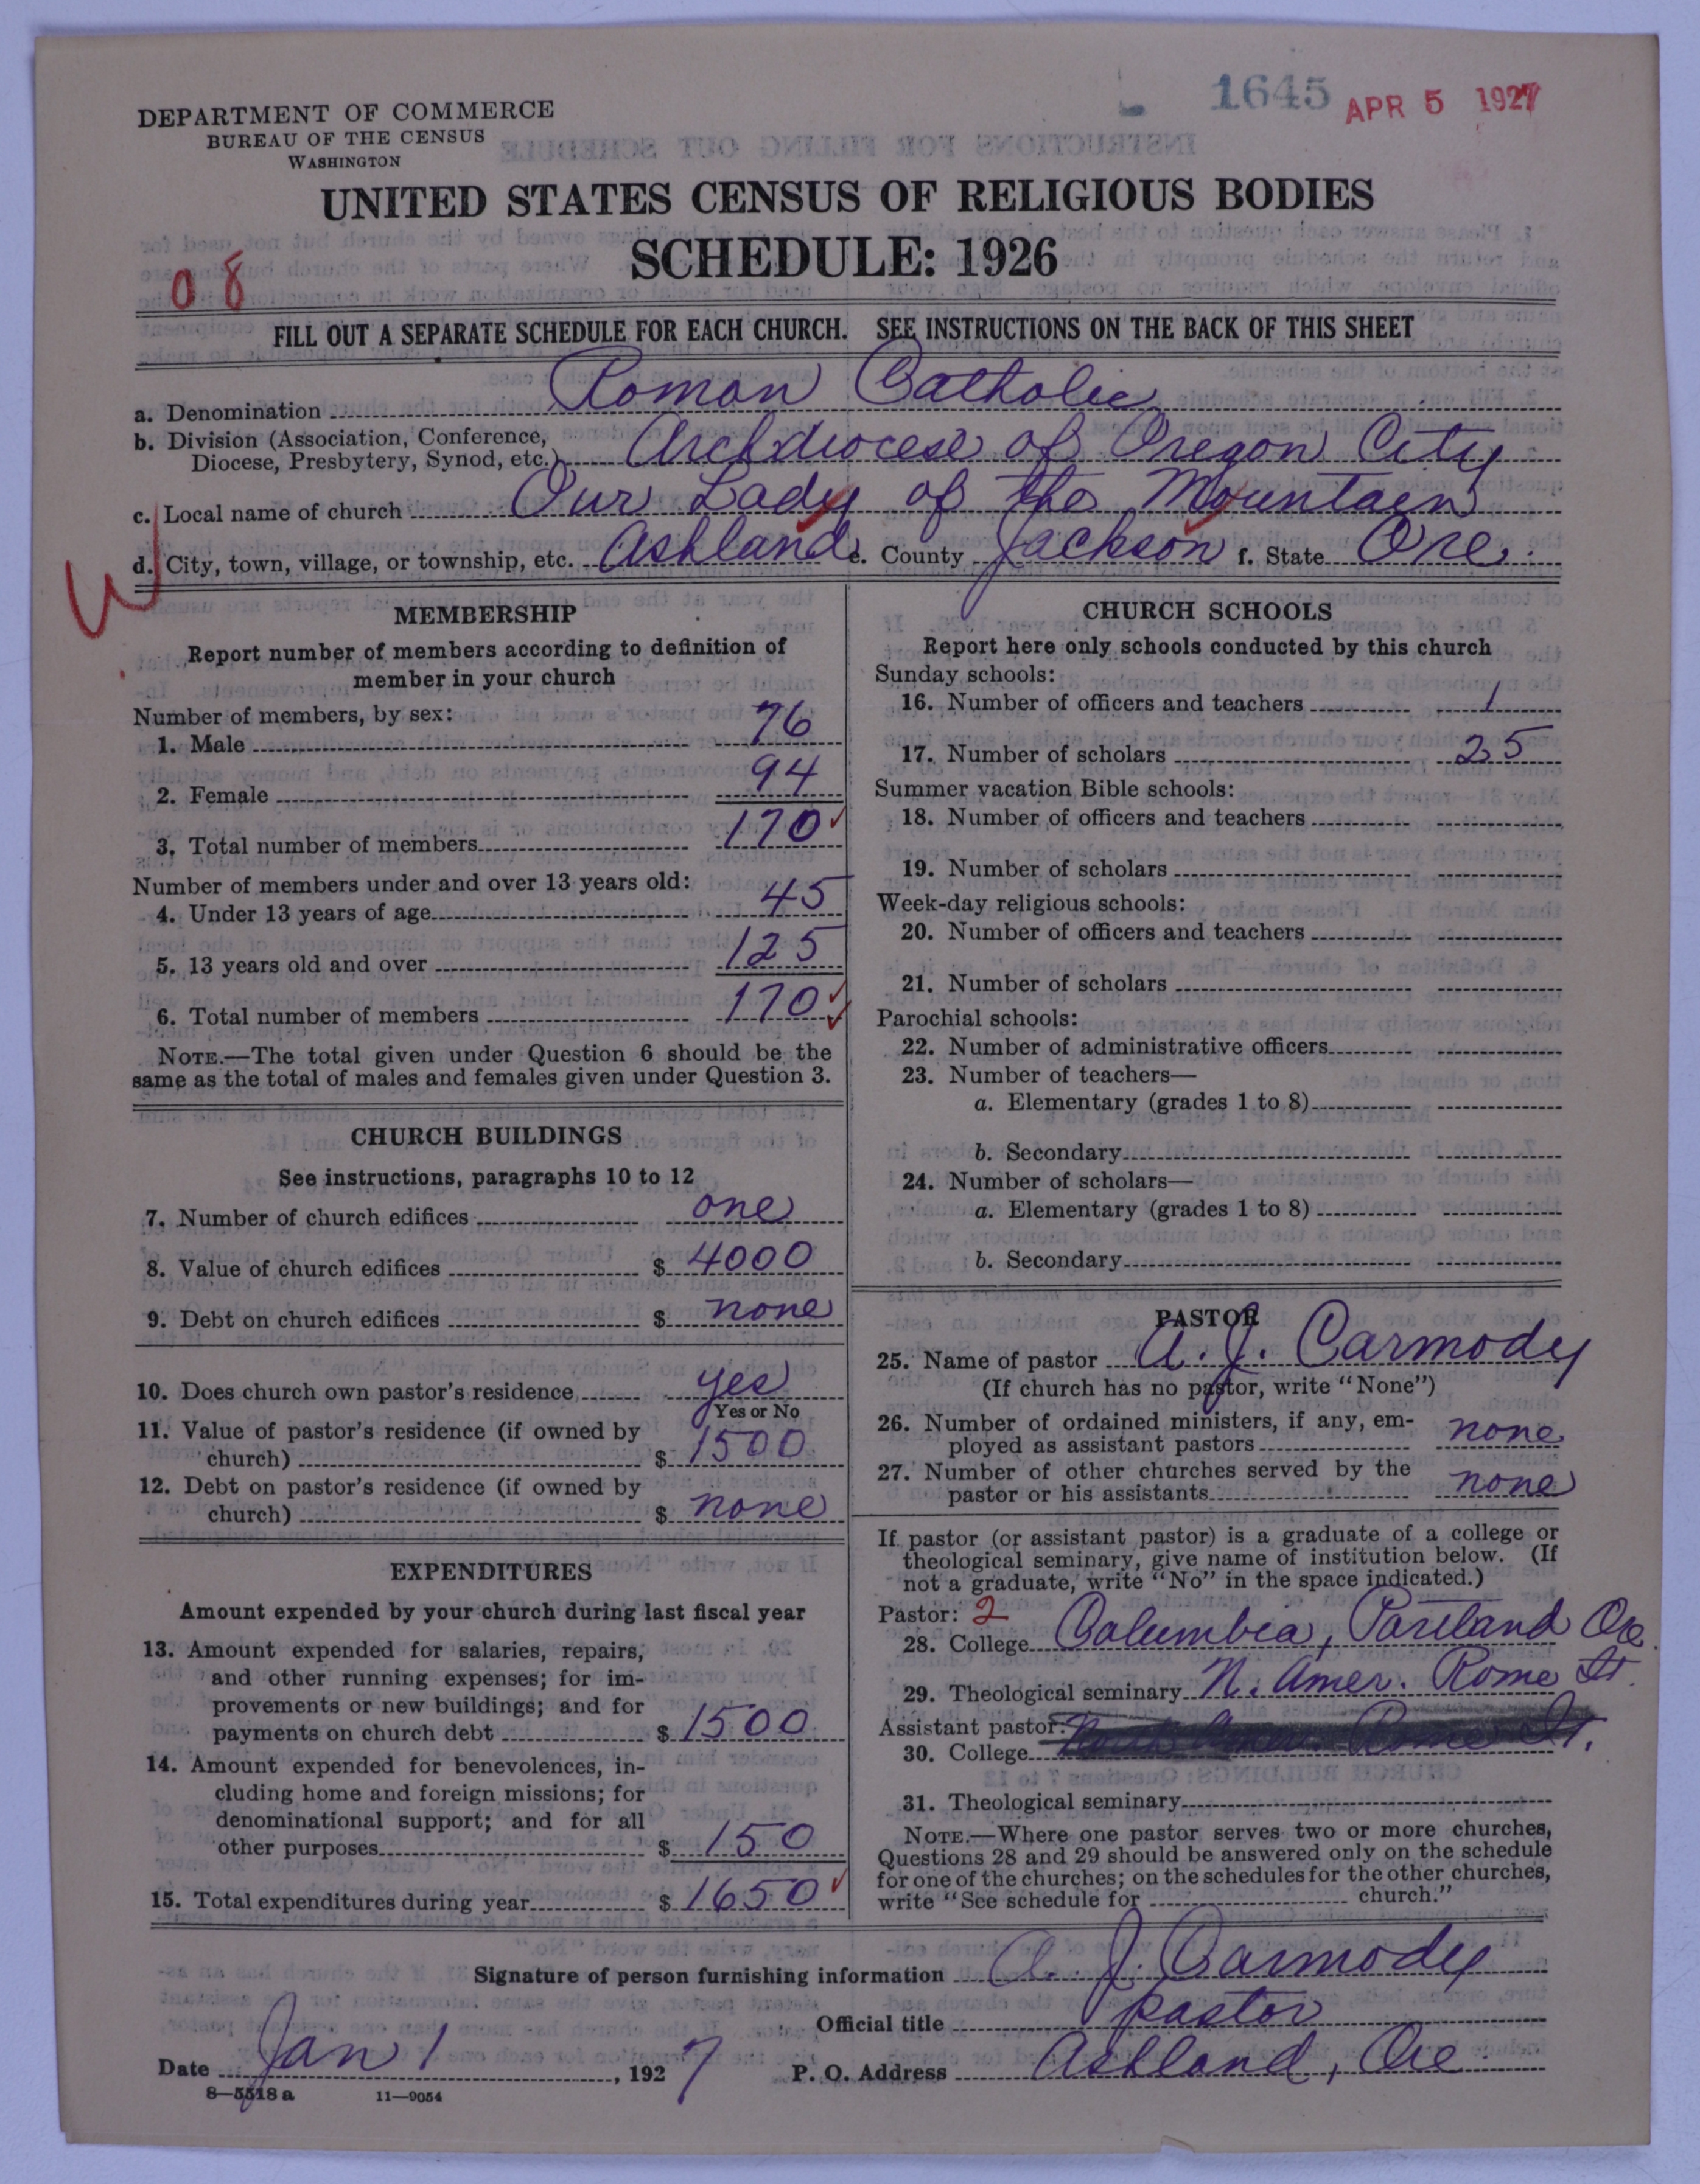 1645 APR 5 1927
DEPARTMENT OF COMMERCE
BUREAU OF THE CENSUS
WASHINGTON
UNITED STATES CENSUS OF RELIGIOUS BODIES
SCHEDULE: 1926
08
FILL OUT A SEPARATE SCHEDULE FOR EACH CHURCH. SEE INSTRUCTIONS ON THE BACK OF THIS SHEET
a. Denomination Roman Catholic
b. Division (Association, Conference,
Diocese, Presbytery, Synod, etc.) Archdiocese of Oregon City
c. Local name of church Our Lady of the Mountain
d. City, town, village, or township, etc. Ashland e. County Jackson f. State Ore.
W
MEMBERSHIP
Report number of members according to definition of
member in your church
Number of members, by sex:
1. Male 76
2. Female 94
3. Total number of members 170
Number of members under and over 13 years old:
4. Under 13 years of age 45
5. 13 years old and over 125
6. Total number of members 170
NOTE.—The total given under Question 6 should be the
same as the total of males and females given under Question 3.
CHURCH BUILDINGS
See instructions, paragraphs 10 to 12
7. Number of church edifices one
8. Value of church edifices $ 4000
9. Debt on church edifices $ none
10. Does church own pastor's residence yes
Yes or No
11. Value of pastor's residence (if owned by
church) $ 1500
12. Debt on pastor's residence (if owned by
church) $ none
EXPENDITURES
Amount expended by your church during last fiscal year
13. Amount expended for salaries, repairs,
and other running expenses; for im-
provements or new buildings; and for
payments on church debt $ 1500
14. Amount expended for benevolences, in-
cluding home and foreign missions; for
denominational support; and for all
other purposes $ 150
15. Total expenditures during year $ 1650
CHURCH SCHOOLS
Report here only schools conducted by this church
Sunday schools:
16. Number of officers and teachers 1
17. Number of scholars 25
Summer vacation Bible schools:
18. Number of officers and teachers
19. Number of scholars
Week-day religious schools:
20. Number of officers and teachers
21. Number of scholars
Parochial schools:
22. Number of administrative officers
23. Number of teachers—
a. Elementary (grades 1 to 8)
b. Secondary
24. Number of scholars—
a. Elementary (grades 1 to 8)
b. Secondary
PASTOR
25. Name of pastor A. J. Carmody
(If church has no pastor, write "None")
26. Number of ordained ministers, if any, em-
ployed as assistant pastors none
27. Number of other churches served by the
pastor or his assistants none
If pastor (or assistant pastor) is a graduate of a college or
theological seminary, give name of institution below. (If
not a graduate, write "No" in the space indicated.)
Pastor: 2
28. College Columbia, Portland Ore
29. Theological seminary N. Amer. Rome It.
Assistant pastor:
30. College
31. Theological seminary
NOTE.—Where one pastor serves two or more churches,
Questions 28 and 29 should be answered only on the schedule
for one of the churches; on the schedules for the other churches,
write "See schedule for church."
Signature of person furnishing information A. J. Carmody
Official title pastor
Date Jan 1, 1927 P. O. Address Ashland, Ore
8—5518 a 11—9054